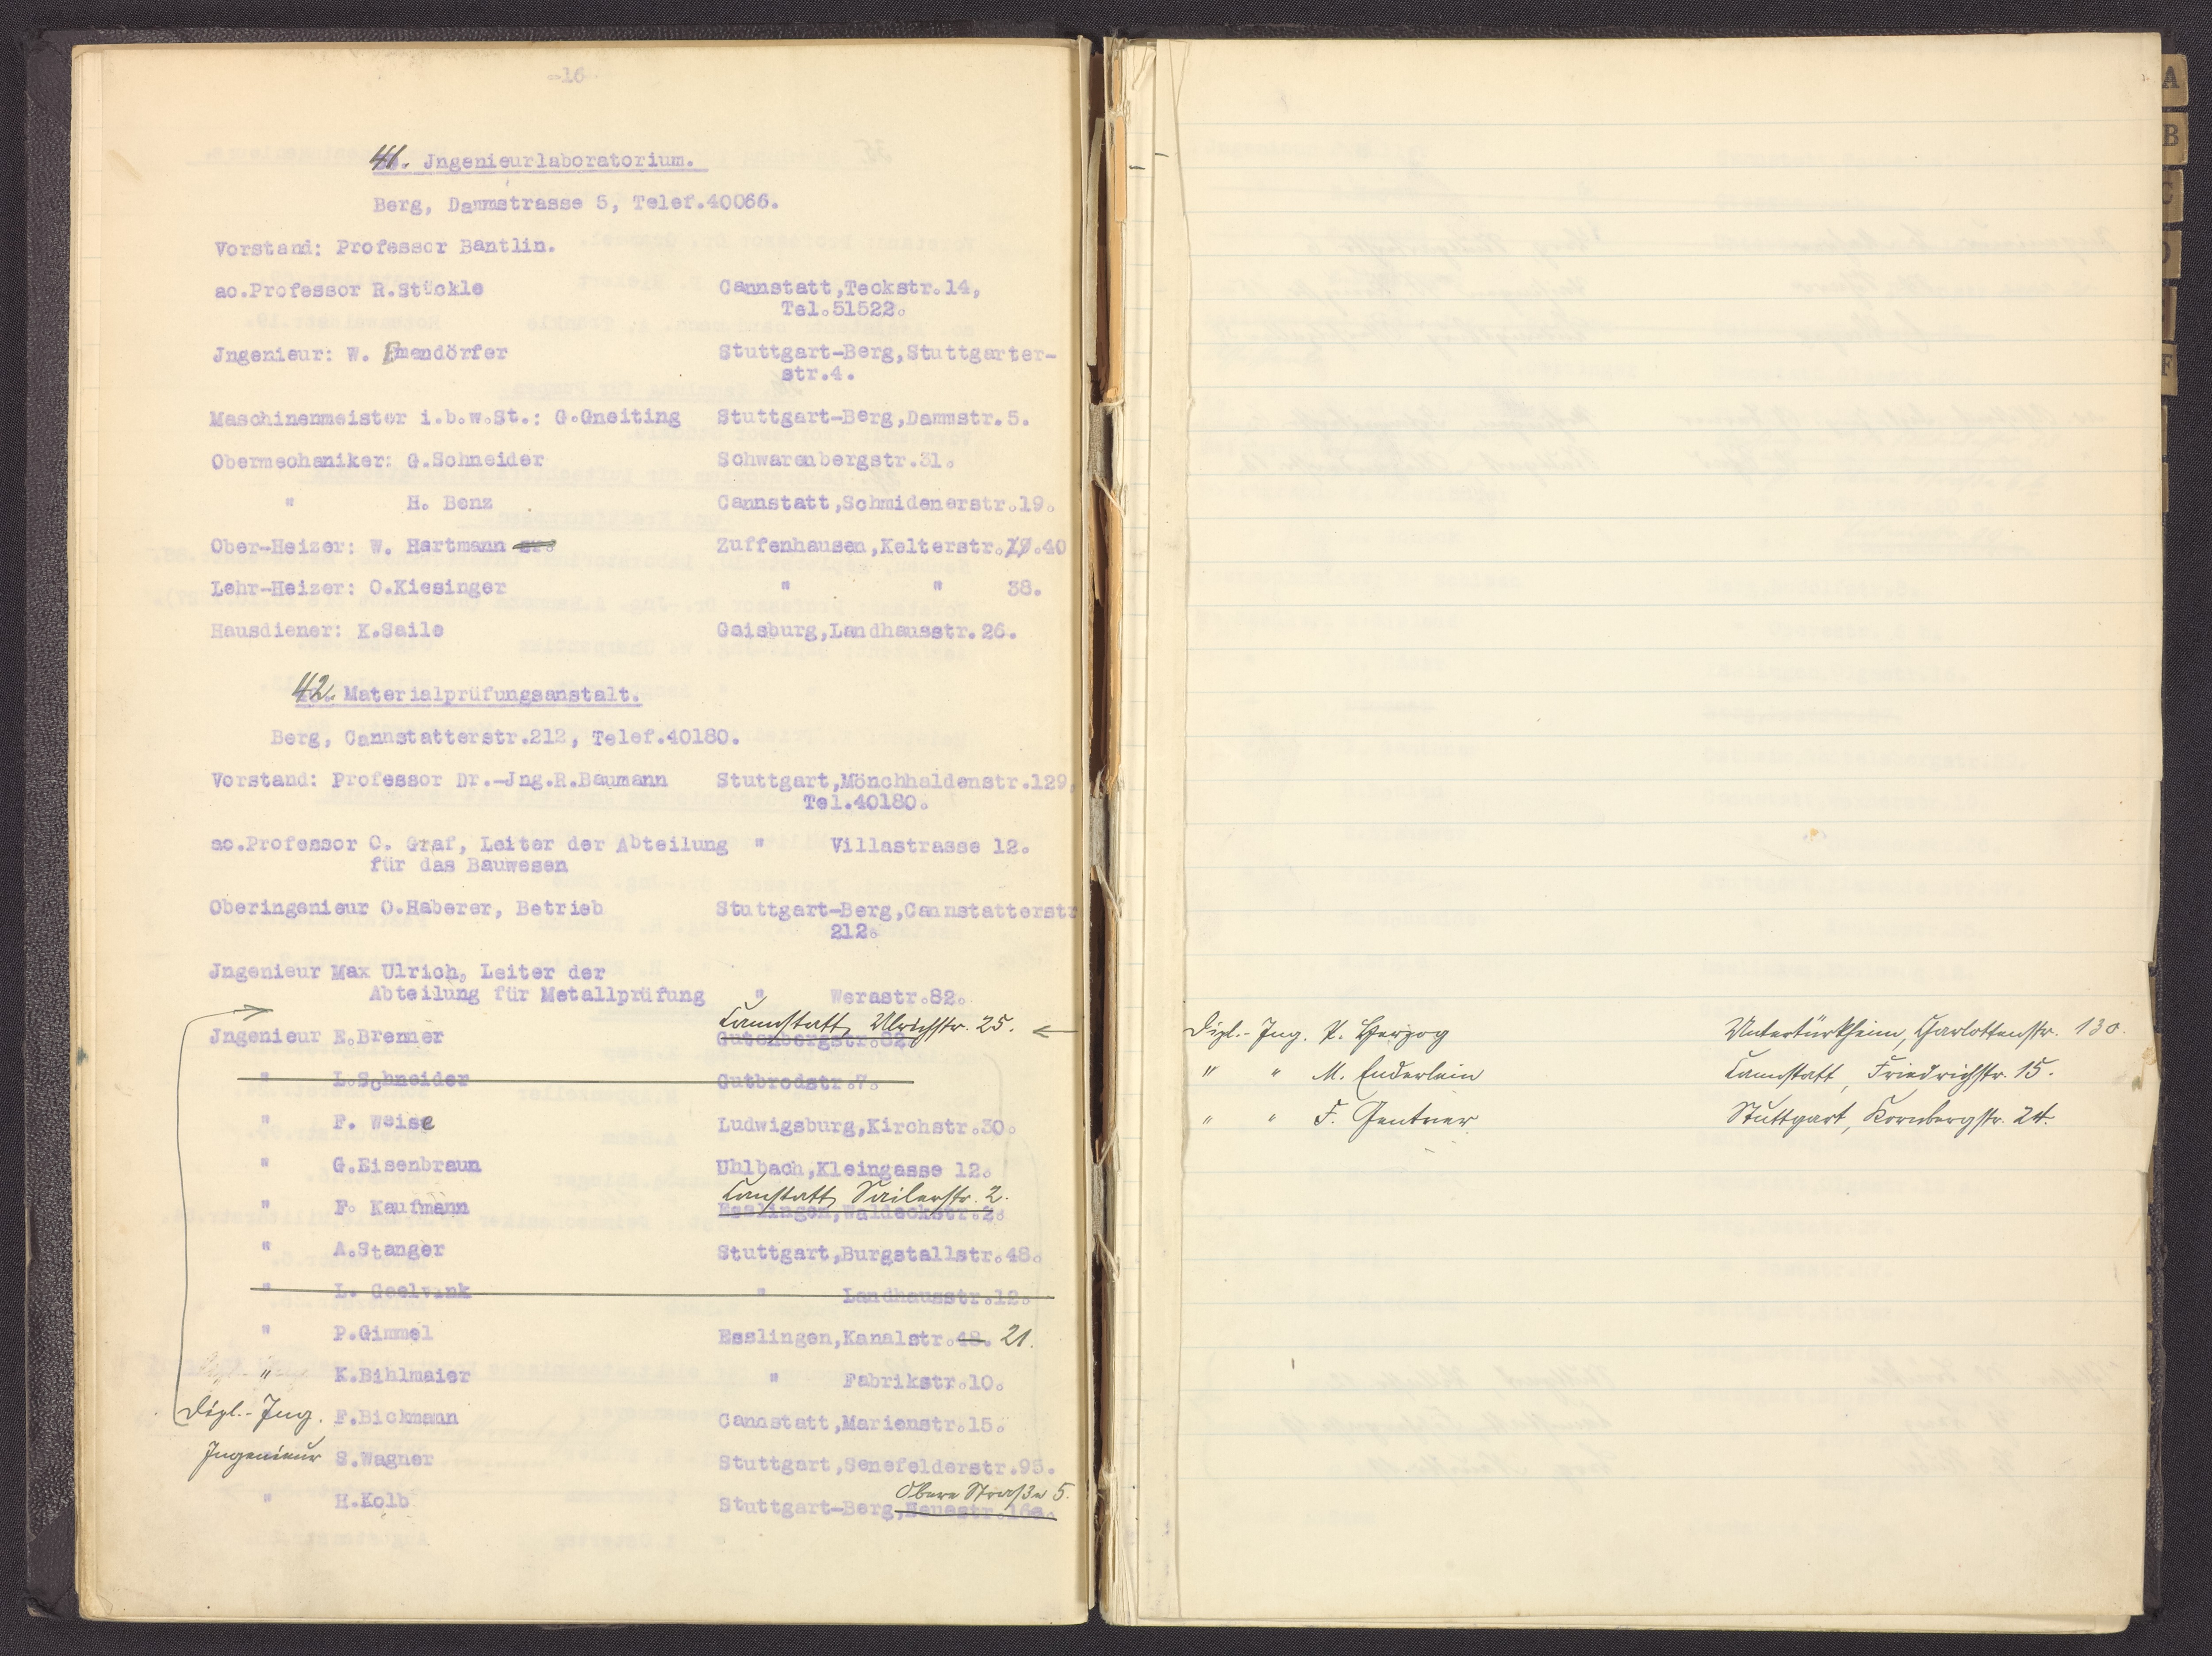 -16-
41. Jngenieurlaboratorium.
Berg, Dammstrasse 5, Telef.40066.
Vorstand: Professor Bantlin.
ao.Professor R.Stückle Cannstatt,Teckstr.14,
Tel.51522.
Jngenieur: W. Emendörfer Stuttgart-Berg,Stuttgarter-
str.4.
Maschinenmeister i.b.w.St.: G.Gneiting Stuttgart-Berg,Dammstr.5.
Obermechaniker: G.Schneider Schwarenbergstr.31.
" H. Benz Cannstatt,Schmidenerstr.19.
Ober-Heizer: W. Hartmann Zuffenhausen,Kelterstr.19.40
Lehr-Heizer: O.Kiesinger " " 38.
Hausdiener: K.Saile Gaisburg,Landhausstr.26.
42. Materialprüfungsanstalt.
Berg, Cannstatterstr.212, Telef.40180.
Vorstand: Professor Dr.-Jng.R.Baumann Stuttgart,Mönchhaldenstr.129,
Tel.40180.
ao.Professor O. Graf, Leiter der Abteilung " Villastrasse 12.
für das Bauwesen
Oberingenieur O.Haberer, Betrieb Stuttgart-Berg,Cannstatterstr
212.
Jngenieur Max Ulrich, Leiter der
Abteilung für Metallprüfung " Werastr.82.
Cannstatt, Ulrichstr. 25.
Jngenieur E.Brenner Gutenbergstr.82
" L.Schneider Gutbrodstr.7.
" F. Weise Ludwigsburg,Kirchstr.30.
" G.Eisenbraun Uhlbach,Kleingasse 12.
Canstatt, Seilerstr. 2.
" F. Kaufmann Esslingen,Waldeckstr.2.
" A.Stanger Stuttgart,Burgstallstr.48.
" L. Geelvink " Landhausstr.12.
" P.Gimmel Esslingen,Kanalstr.48. 21.
" K.Bihlmaier " Fabrikstr.10.
Dipl.-Jng. F.Bickmann Cannstatt,Marienstr.15.
Jngenieur S.Wagner Stuttgart,Senefelderstr.95.
Obere Straße 5.
" H.Kolb Stuttgart-Berg,Neuestr.16a.
Dipl.-Jng. P. Herzog Untertürkheim, Charlottenstr. 130.
" " M. Enderlein Cannstatt, Friedrichstr. 15.
" " F. Gentner Stuttgart, Kornbergstr. 24.
A
B
C
D
F